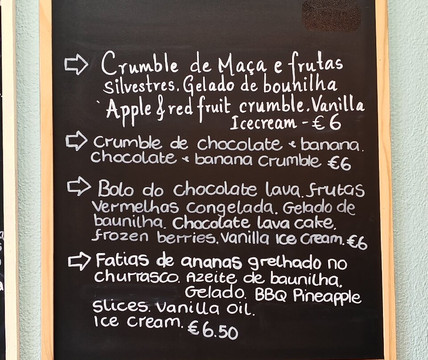 Crumble de Maça e frutas
Silvestres. Gelado de bounilha
Apple & red fruit crumble. Vanilla
Icecream - € 6
Crumble de chocolate + banana.
Chocolate + banana Crumble €6
Bolo do chocolate lava. frutas
vermelhas congelada. Gelado de
baunilha. Chocolate lava cake,
frozen berries. Vanilla Ice Cream. €6
Fatias de ananas grelhado no
churrasco. Azeite de baunilha,
Gelado. BBQ Pineapple
Slices. Vanilla Oil.
Ice cream. €6.50